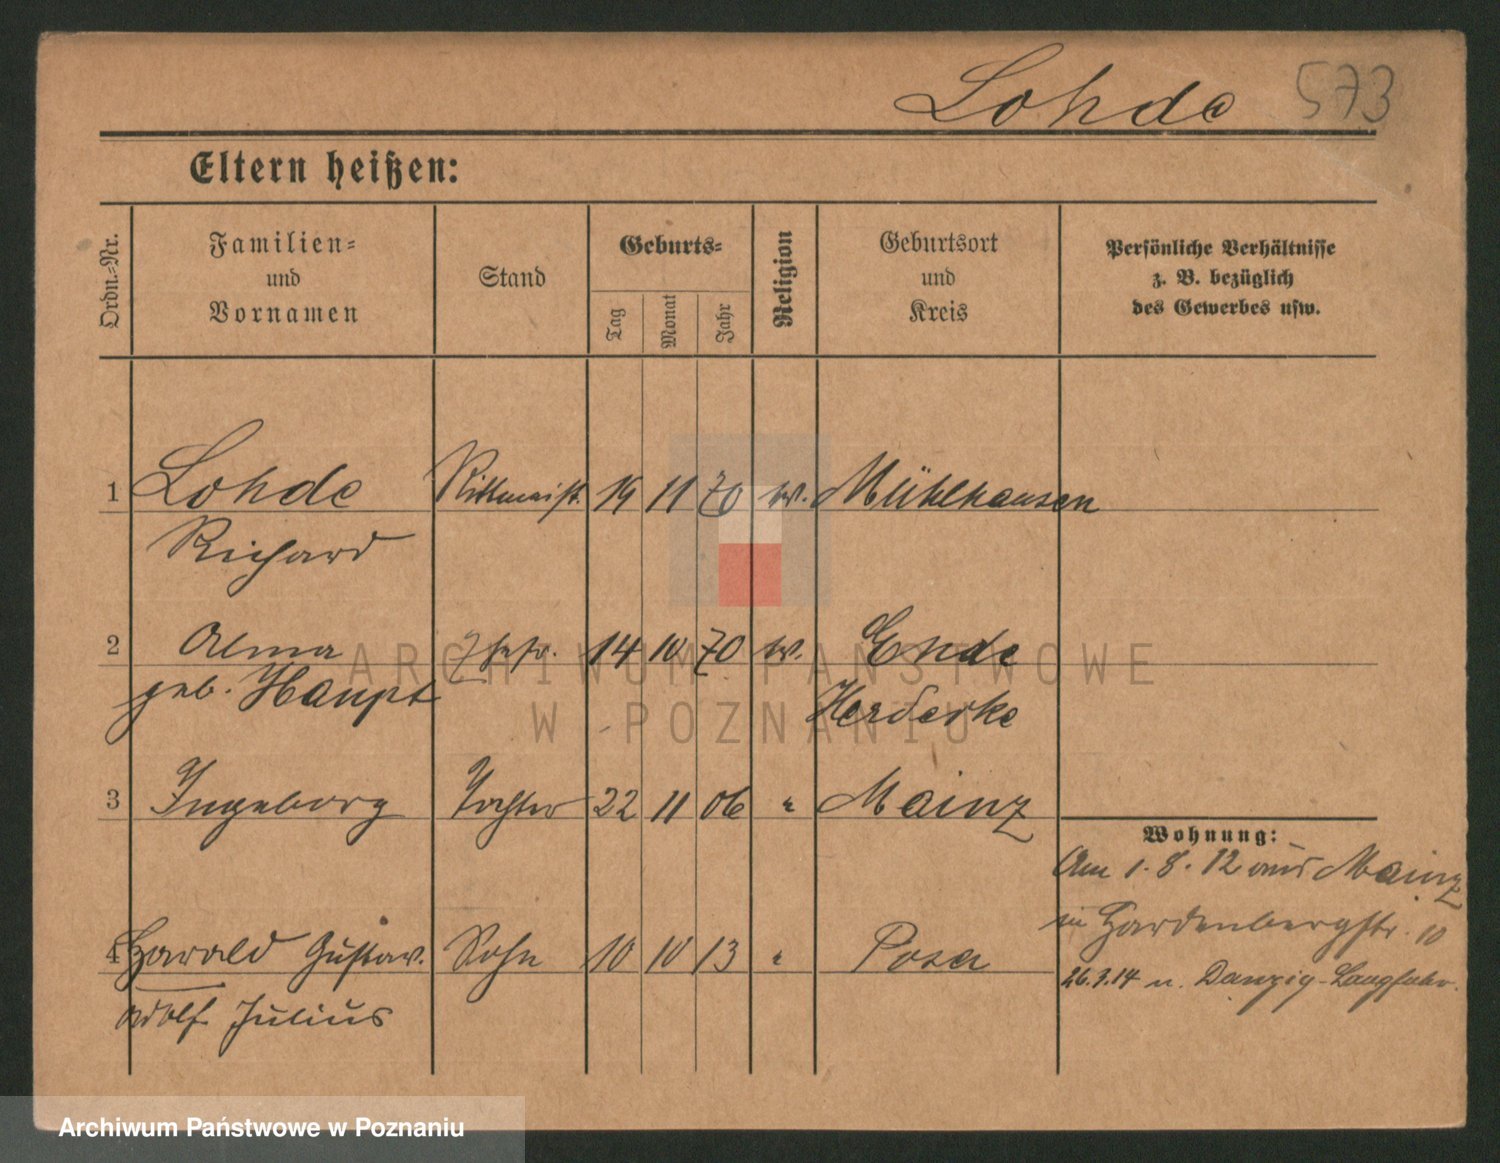 Lohde 573
Eltern heißen:
Ordn.-Nr.
Familien- und Vornamen
Stand
Geburts-
Tag
Monat
Jahr
Religion
Geburtsort und Kreis
Persönliche Verhältnisse
z. B. bezüglich
des Gewerbes usw.
1 Lohde Rittmeist. 19 11 70 ev. Mühlhausen
Richard
2 Alma Ehefr. 14 10 70 ev. Ende
geb. Haupt Herdecke
3 Ingeborg Tochter 22 11 06 " Mainz
Wohnung:
Am 1.8.12 aus Mainz
in Hardenbergstr. 10
4 Harald Gustav. Sohn 10 10 13 " Posen
26.3.14 n. Danzig-Langfuhr.
Adolf Julius
ARCHIWUM PAŃSTWOWE
W POZNANIU
Archiwum Państwowe w Poznaniu